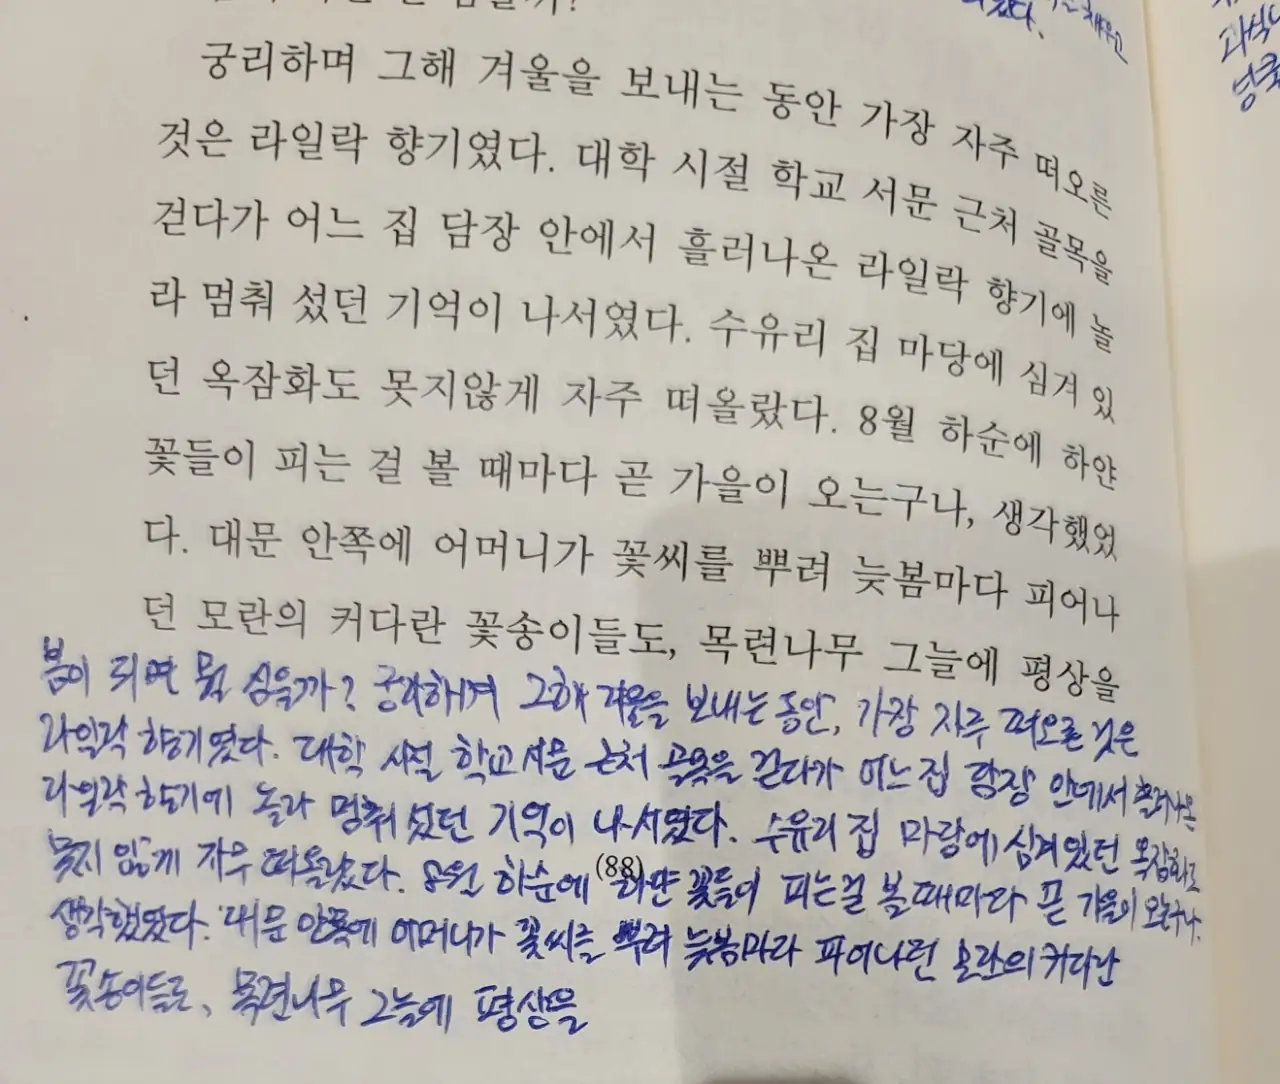 궁리하며 그해 겨울을 보내는 동안 가장 자주 떠오른
것은 라일락 향기였다. 대학 시절 학교 서문 근처 골목을
걷다가 어느 집 담장 안에서 흘러나온 라일락 향기에 놀
라 멈춰 섰던 기억이 나서였다. 수유리 집 마당에 심겨 있
던 옥잠화도 못지않게 자주 떠올랐다. 8월 하순에 하얀
꽃들이 피는 걸 볼 때마다 곧 가을이 오는구나, 생각했었
다. 대문 안쪽에 어머니가 꽃씨를 뿌려 늦봄마다 피어나
던 모란의 커다란 꽃송이들도, 목련나무 그늘에 평상을
봄이 되면 뭘 심을까? 궁리하며 그해 겨울을 보내는 동안, 가장 자주 떠오른 것은
라일락 향기였다. 대학 시절 학교 서문 근처 골목을 걷다가 어느 집 담장 안에서 흘러나온
라일락 향기에 놀라 멈춰 섰던 기억이 나서였다. 수유리 집 마당에 심겨 있던 옥잠화도
못지 않게 자주 떠올랐다. 8월 하순에 하얀 꽃들이 피는 걸 볼 때마다 곧 가을이 오는구나.
(88)
생각했었다. 대문 안쪽에 어머니가 꽃씨를 뿌려 늦봄마다 피어나던 모란의 커다란
꽃송이들도, 목련나무 그늘에 평상을